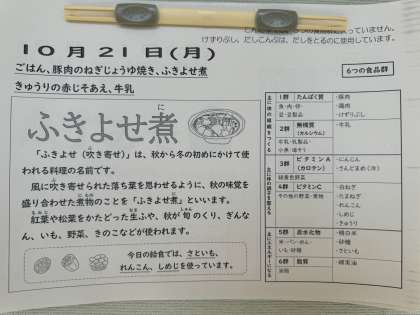 入っていません。
けずりぶし、だしこんぶは、だしをとるのに使用しています。
１０月２１日(月)
ごはん、豚肉のねぎじょうゆ焼き、ふきよせ煮
きゅうりの赤じそあえ、牛乳
ふきよせ煮
に
「ふきよせ（吹き寄せ）」は、秋から冬の初めにかけて使
われる料理の名前です。
風に吹き寄せられた落ち葉を思わせるように、秋の味覚を
盛り合わせた煮物のことを「ふきよせ煮」といいます。
紅葉や松葉をかたどった生ふや、秋が旬のくり、ぎんな
ん、いも、野菜、きのこなどが使われます。
今日の給食では、さといも、
れんこん、しめじを使っています。
6つの食品群
1群 たんぱく質
魚・肉・卵・
豆・豆製品
・豚肉
・鶏肉
・けずりぶし
2群 無機質
(カルシウム)
牛乳・乳製品・
小魚・海そう
・牛乳
3群 ビタミンA
(カロテン)
緑黄色野菜
・にんじん
・さんどまめ（冷）
4群 ビタミンC
その他の野菜・果物
・白ねぎ
・たまねぎ
・れんこん
・しめじ
・きゅうり
5群 炭水化物
米・パン・めん・
いも・砂糖
・精白米
・砂糖
・さといも
6群 脂質
油脂
・綿実油